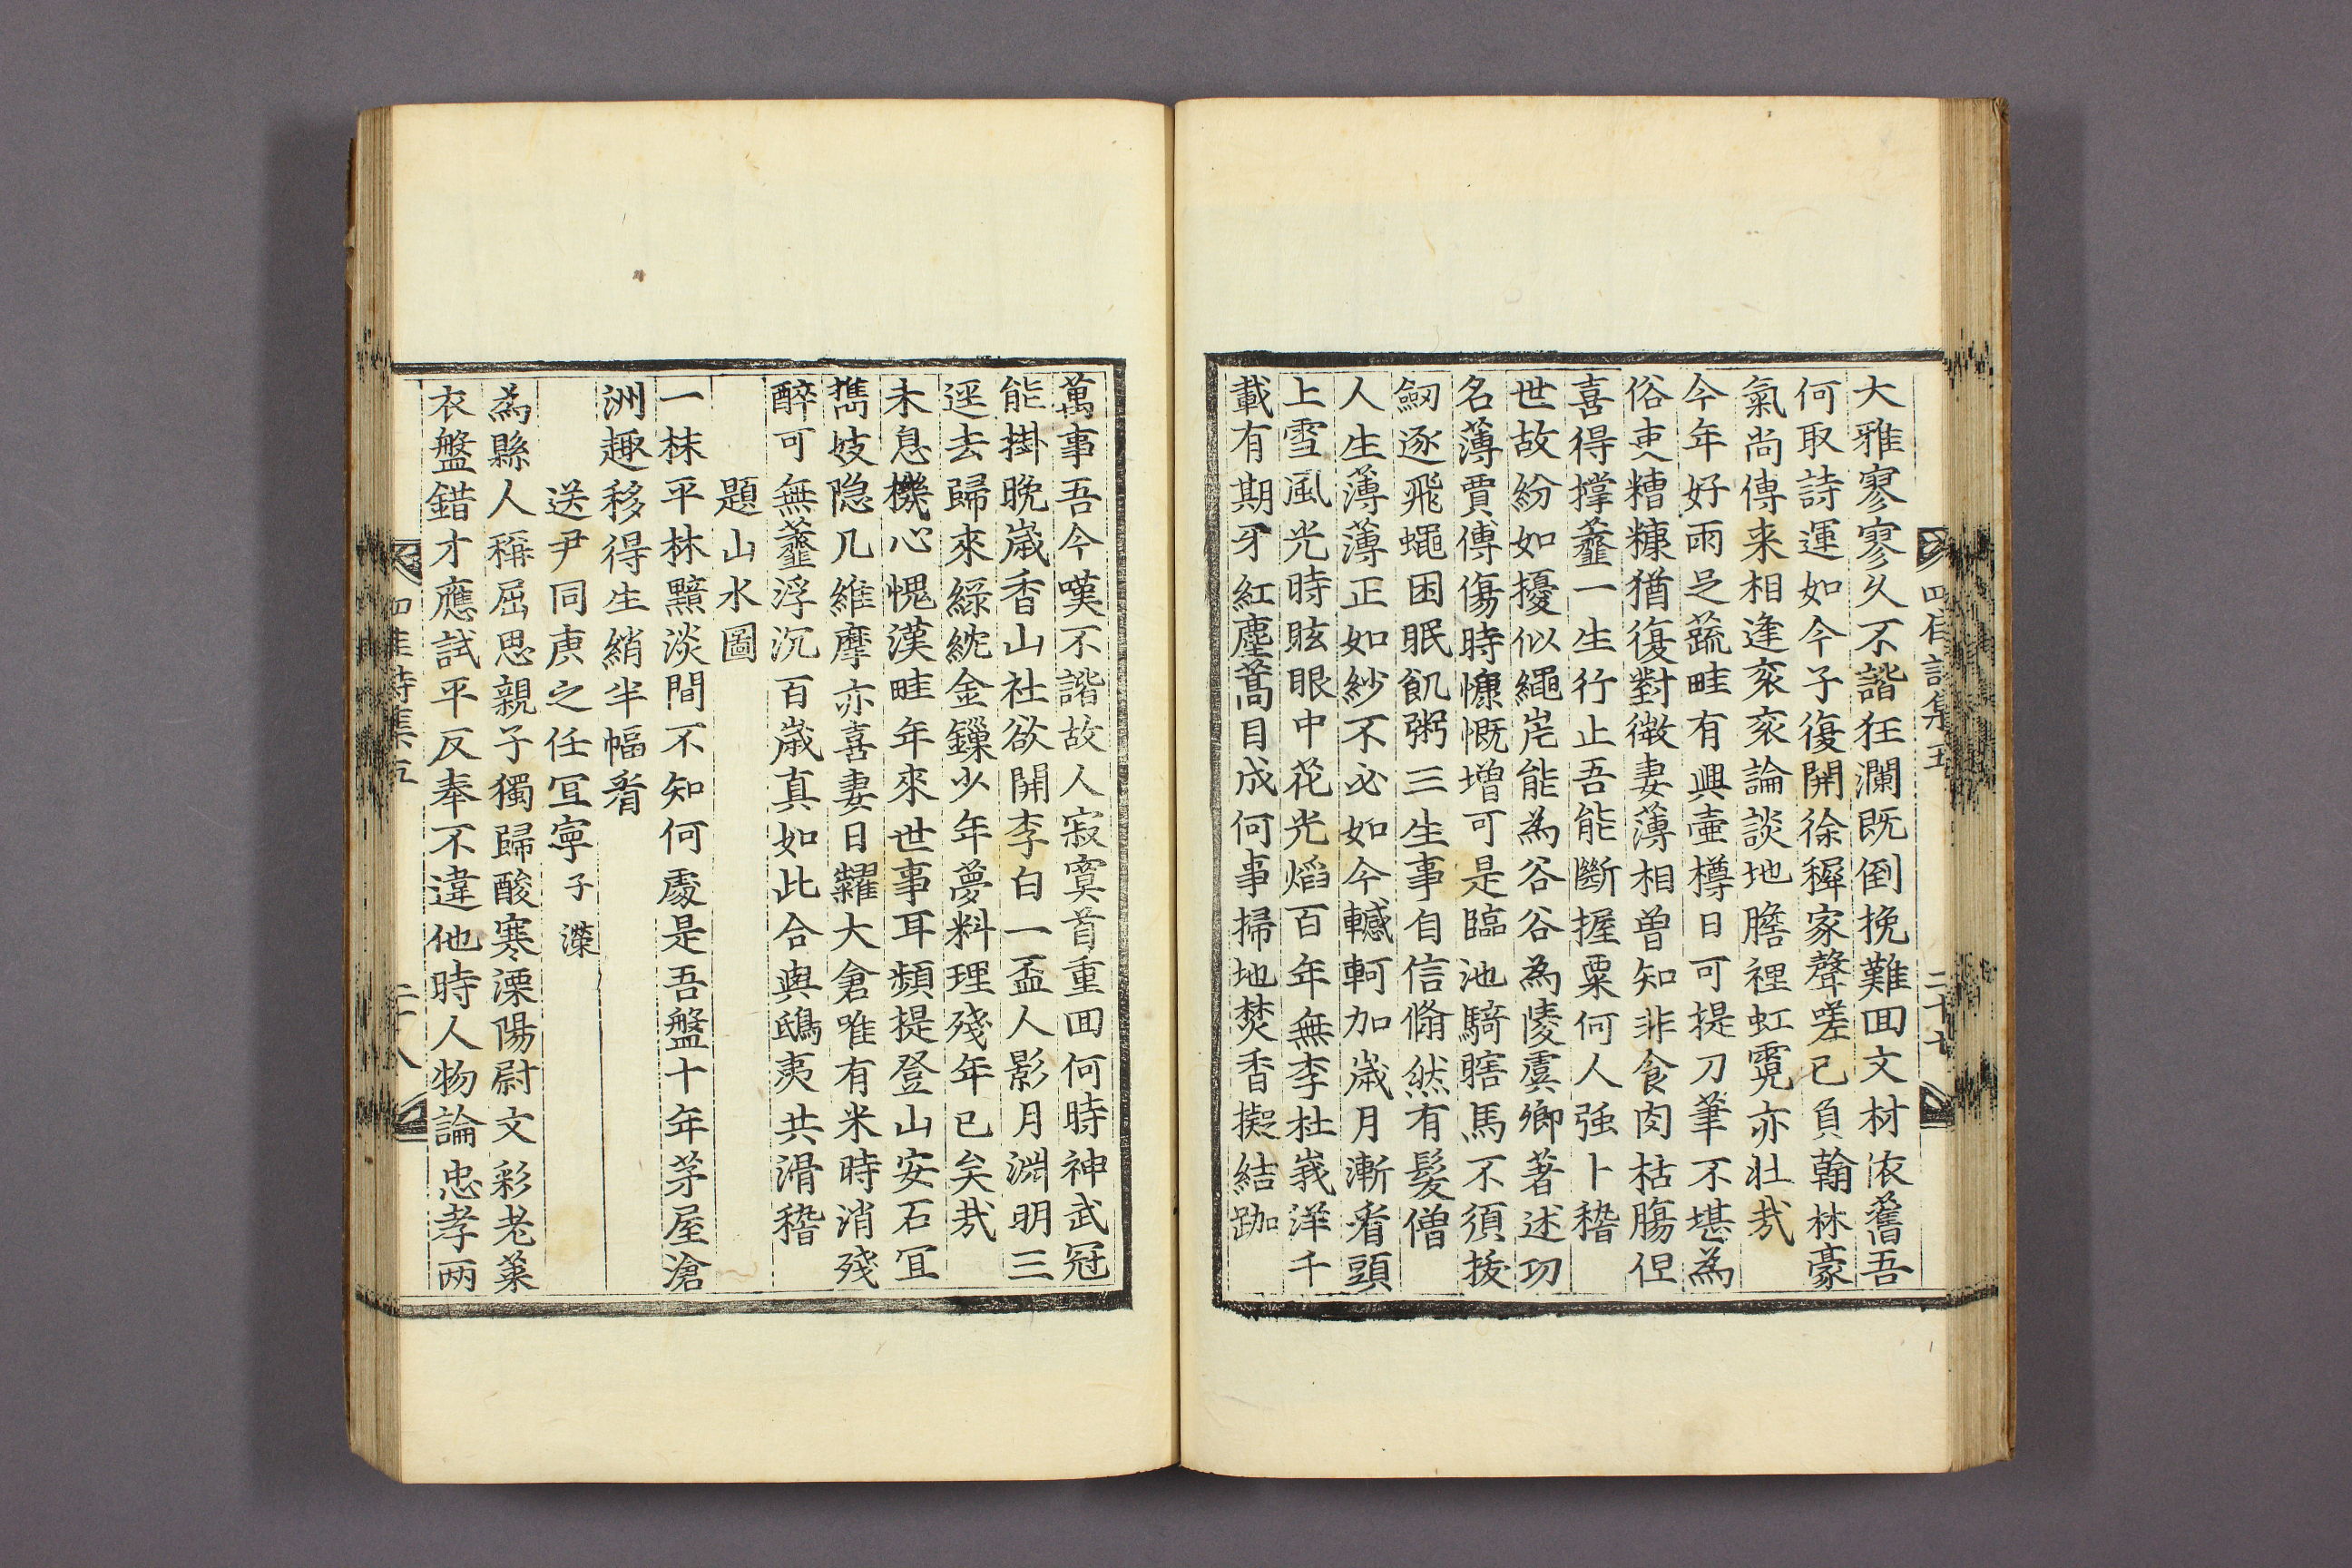 大雅寥寥久不諧狂瀾既倒挽難囬文材依舊吾
何取詩運如今子復開徐穉家聲嗟已負翰林豪
氣尚傳来相逢衮衮論談地膽裡虹霓亦壮㢤
今年好雨足蔬畦有興壷樽日可提刀筆不堪為
俗吏糟糠猶復對微妻薄相曽知非食肉枯膓但
喜得撑虀一生行止吾能斷握粟何人强卜稽
世故紛如擾似繩岸能為谷谷為陵虞卿著述功
名薄賈傅傷時慷慨增可是臨池騎瞎馬不須拔
劒逐飛蠅困眠飢粥三生事自信翛然有髮僧
人生薄薄正如紗不必如今轗軻加歲月漸看頭
上雪風光時眩眼中花光熖百年無李杜峩洋千
載有期牙紅塵蒿目成何事掃地焚香擬結跏
四佳詩集五
二十七
萬事吾今嘆不諧故人寂寞首重囬何時神武冠
能掛晚歲香山社欲開李白一盃人影月淵明三
逕去歸來綠綂金鏁少年夢料理殘年已矣㢤
未息機心愧漢畦年來世事耳頻提登山安石冝
擕妓隐几維摩亦喜妻日糶大倉唯有米時消殘
醉可無虀浮沉百歲真如此合與鴟夷共滑稽
題山水圖
一抹平林黯淡間不知何處是吾盤十年茅屋滄
洲趣移得生綃半幅看
送尹同庚之任冝寧子濚
為縣人稱屈思親子獨歸酸寒溧陽尉文彩老萊
衣盤錯才應試平反奉不違他時人物論忠孝两
四佳詩集五
二十八